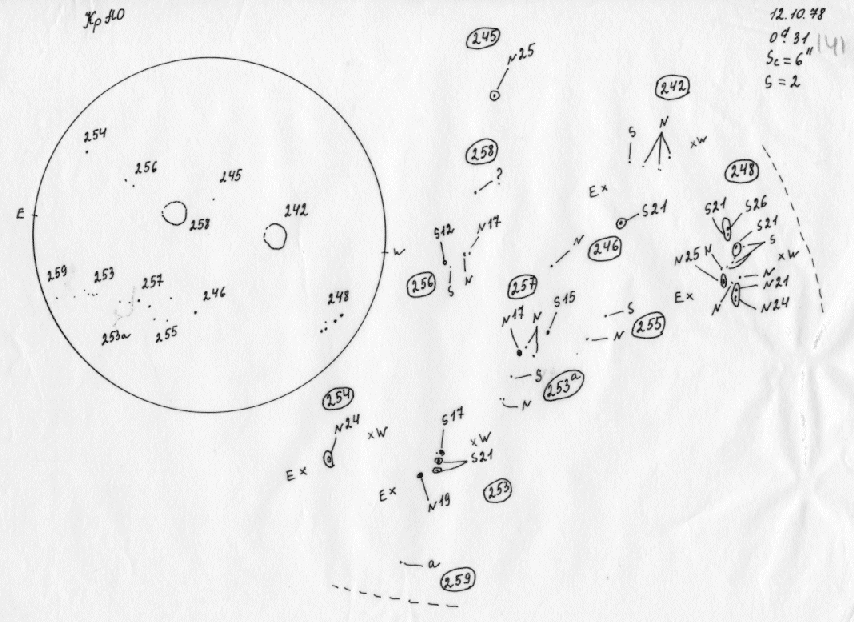 КрАО
12.10.78
09ч 31
Sc = 6"
S = 2
141
254
256
245
258
242
E
W
259
253
257
246
248
253a
255
245
N25
258
?
242
S
N
×W
E×
S21
246
248
S21
S26
S21
S
×W
N25
N
N
N21
E×
N
N24
S12
N17
256
S
N
N
257
N17
N
S15
S
255
N
S
253a
N
254
N24
×W
E×
S17
×W
S21
E×
N19
253
a
259